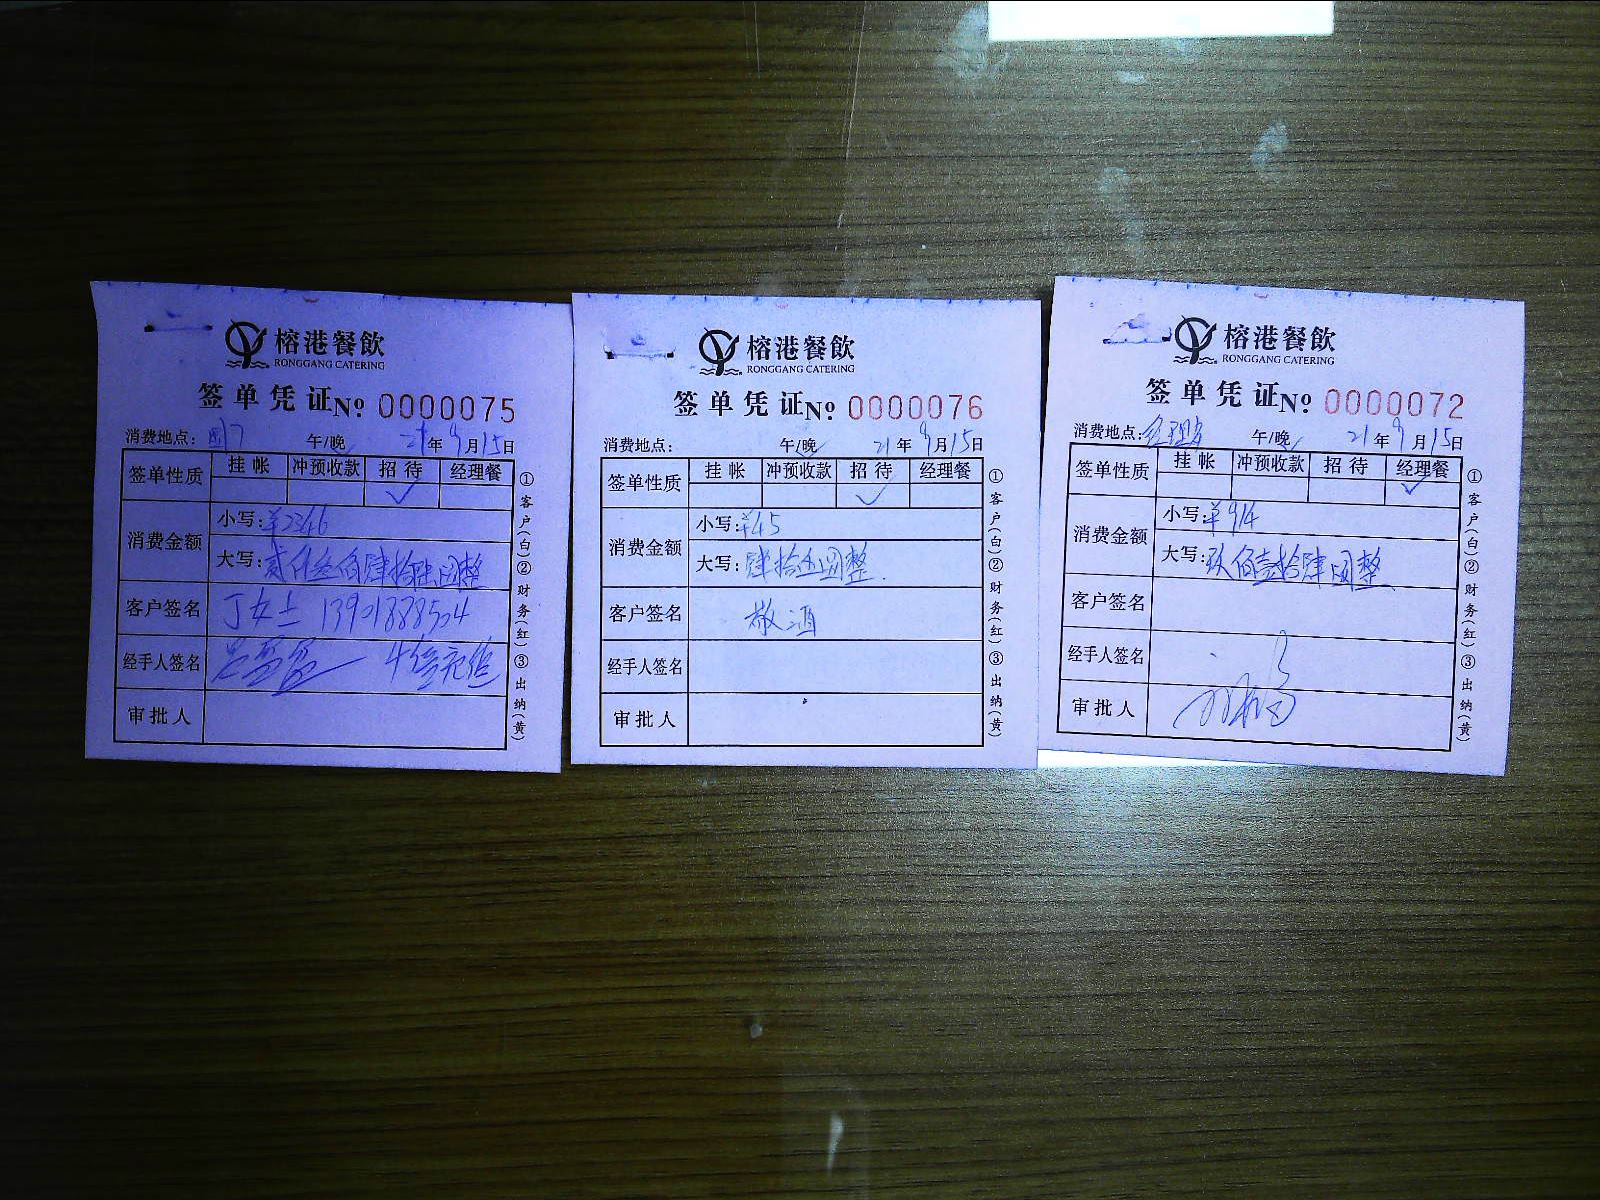 榕港餐飲
RONGGANG CATERING
签单凭证 No 0000075
消费地点: 午/晚 21年9月15日
签单性质 挂帐 冲预收款 招待 经理餐
✓
消费金额 小写:¥2346
大写:贰仟叁佰肆拾陆圆整
客户签名 丁女士
经手人签名
审批人
①客户(白)②财务(红)③出纳(黄)
榕港餐飲
RONGGANG CATERING
签单凭证 No 0000076
消费地点: 午/晚 21年9月15日
签单性质 挂帐 冲预收款 招待 经理餐
✓
消费金额 小写:¥45
大写:肆拾伍圆整
客户签名 敬酒
经手人签名
审批人
①客户(白)②财务(红)③出纳(黄)
榕港餐飲
RONGGANG CATERING
签单凭证 No 0000072
消费地点: 午/晚 21年9月15日
签单性质 挂帐 冲预收款 招待 经理餐
✓
消费金额 小写:¥914
大写:玖佰壹拾肆圆整
客户签名
经手人签名
审批人
①客户(白)②财务(红)③出纳(黄)